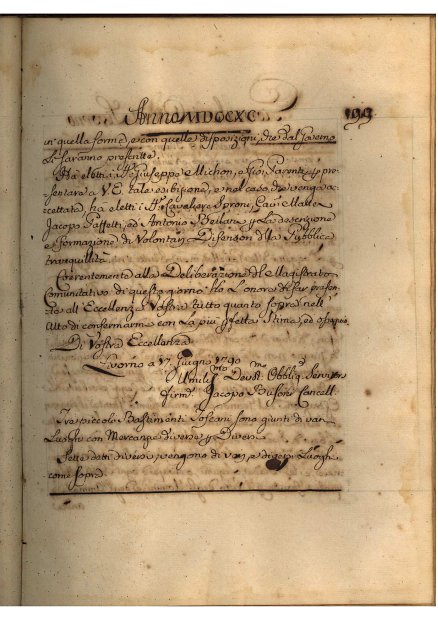 Anno MDCCXC
199
in quella forma, e con quelle disposizioni, che dal Governo
Li saranno prescritte.
Ha eletti i SS.ri Giuseppe Michon, e Gio. Parenti p pre-
sentare a V.E. tale esibizione, e nel caso che venga ac-
cettata, ha eletti i SS.ri Cavaliere Sproni, Cav. Matte
Jacopo Paffetti, ed Antonio Bellana p La descrizione
e formazione di Volontarj Difensori della Pubblica
tranquillità.
Coerentemente alla Deliberazione del Magistrato
Comunitativo di questo giorno Ho L'onore di far presen
te all'Eccellenza Vostra tutto quanto sopra nell'
Atto di confermarmi con La più pfetta Stima, ed ossequio
Di Vostra Eccellenza
Livorno a 17 Giugno 1790
Umiliss.mo Devot.mo Obblig. Servitore
Firm.to Jacopo Cancell.
Tre piccoli Bastimenti Toscani sono giunti di varj
Luoghi con Mercanzie diverse p Diversi
Sette detti diversi vengono di varj, e diversi Luoghi
come sopra.